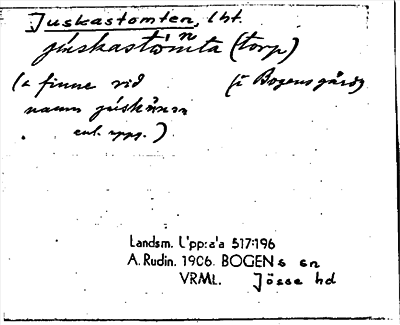 Juskastomten, lht.
júskastòmta (torp)
(a finne vid (i Bogens gård)
namn júskánen
enl. upps.)
Landsm. L'pp:a'a 517:196
A. Rudin. 1906. BOGENs sn
VRML. Jösse hd